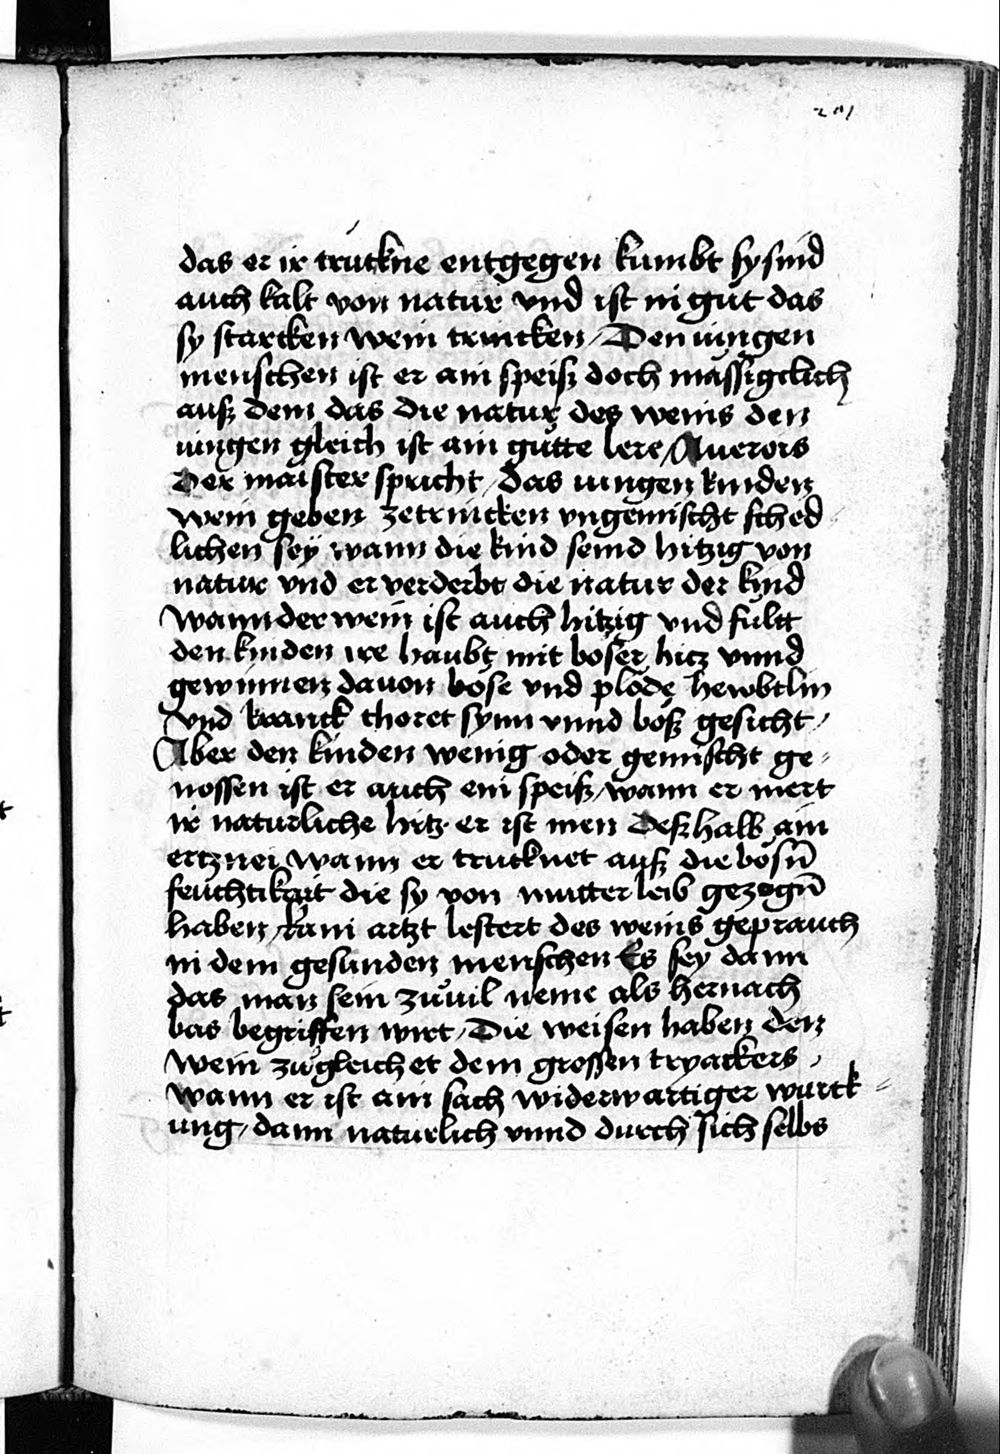 das er ir trúckne entgegen kumbt sy sind
auch kalt von natur vnd ist in gůt das
sy starcken wein trincken / Den iungen
menschen ist er ain speiß doch mässigclich
auß dem das die natur des weins den
iungen gleich ist ain gůtte lere / Auerors
Der maister spricht / das iungen kinden
wein geben zetrincken vngemischt sched
lichen seÿ wann die kind seind hitzig von
natur vnd er verderbt die natur der kind
wann der wein ist auch hitzig vnd fúltt
den kinden ire haubt mit böser hitz vnnd
gewinnen dauon böse vnd plöde hewbtlin
vnd kranck thoret synn vnnd böß gesicht /
Aber den kinden wenig oder gemischt ge=
nossen ist er auch ein speiß / wann er mert
ir naturliche hitz er ist inen Deßhalb ain
ertznei wann er trucknet auß die bösn̄
feuchtikait die sy von mutter leib gezogn̄
haben / kain artzt lestert des weins geprauch
in dem gesunden menschen Es sey dann
das man sein zůuil neme als hernach
bas begriffen wirt / Die weisen haben den
wein zůgleichet dem grossen tryackers /
wann er ist ain sach widerwartiger wurck=
ung / dann naturlich vnnd durch sich selbs